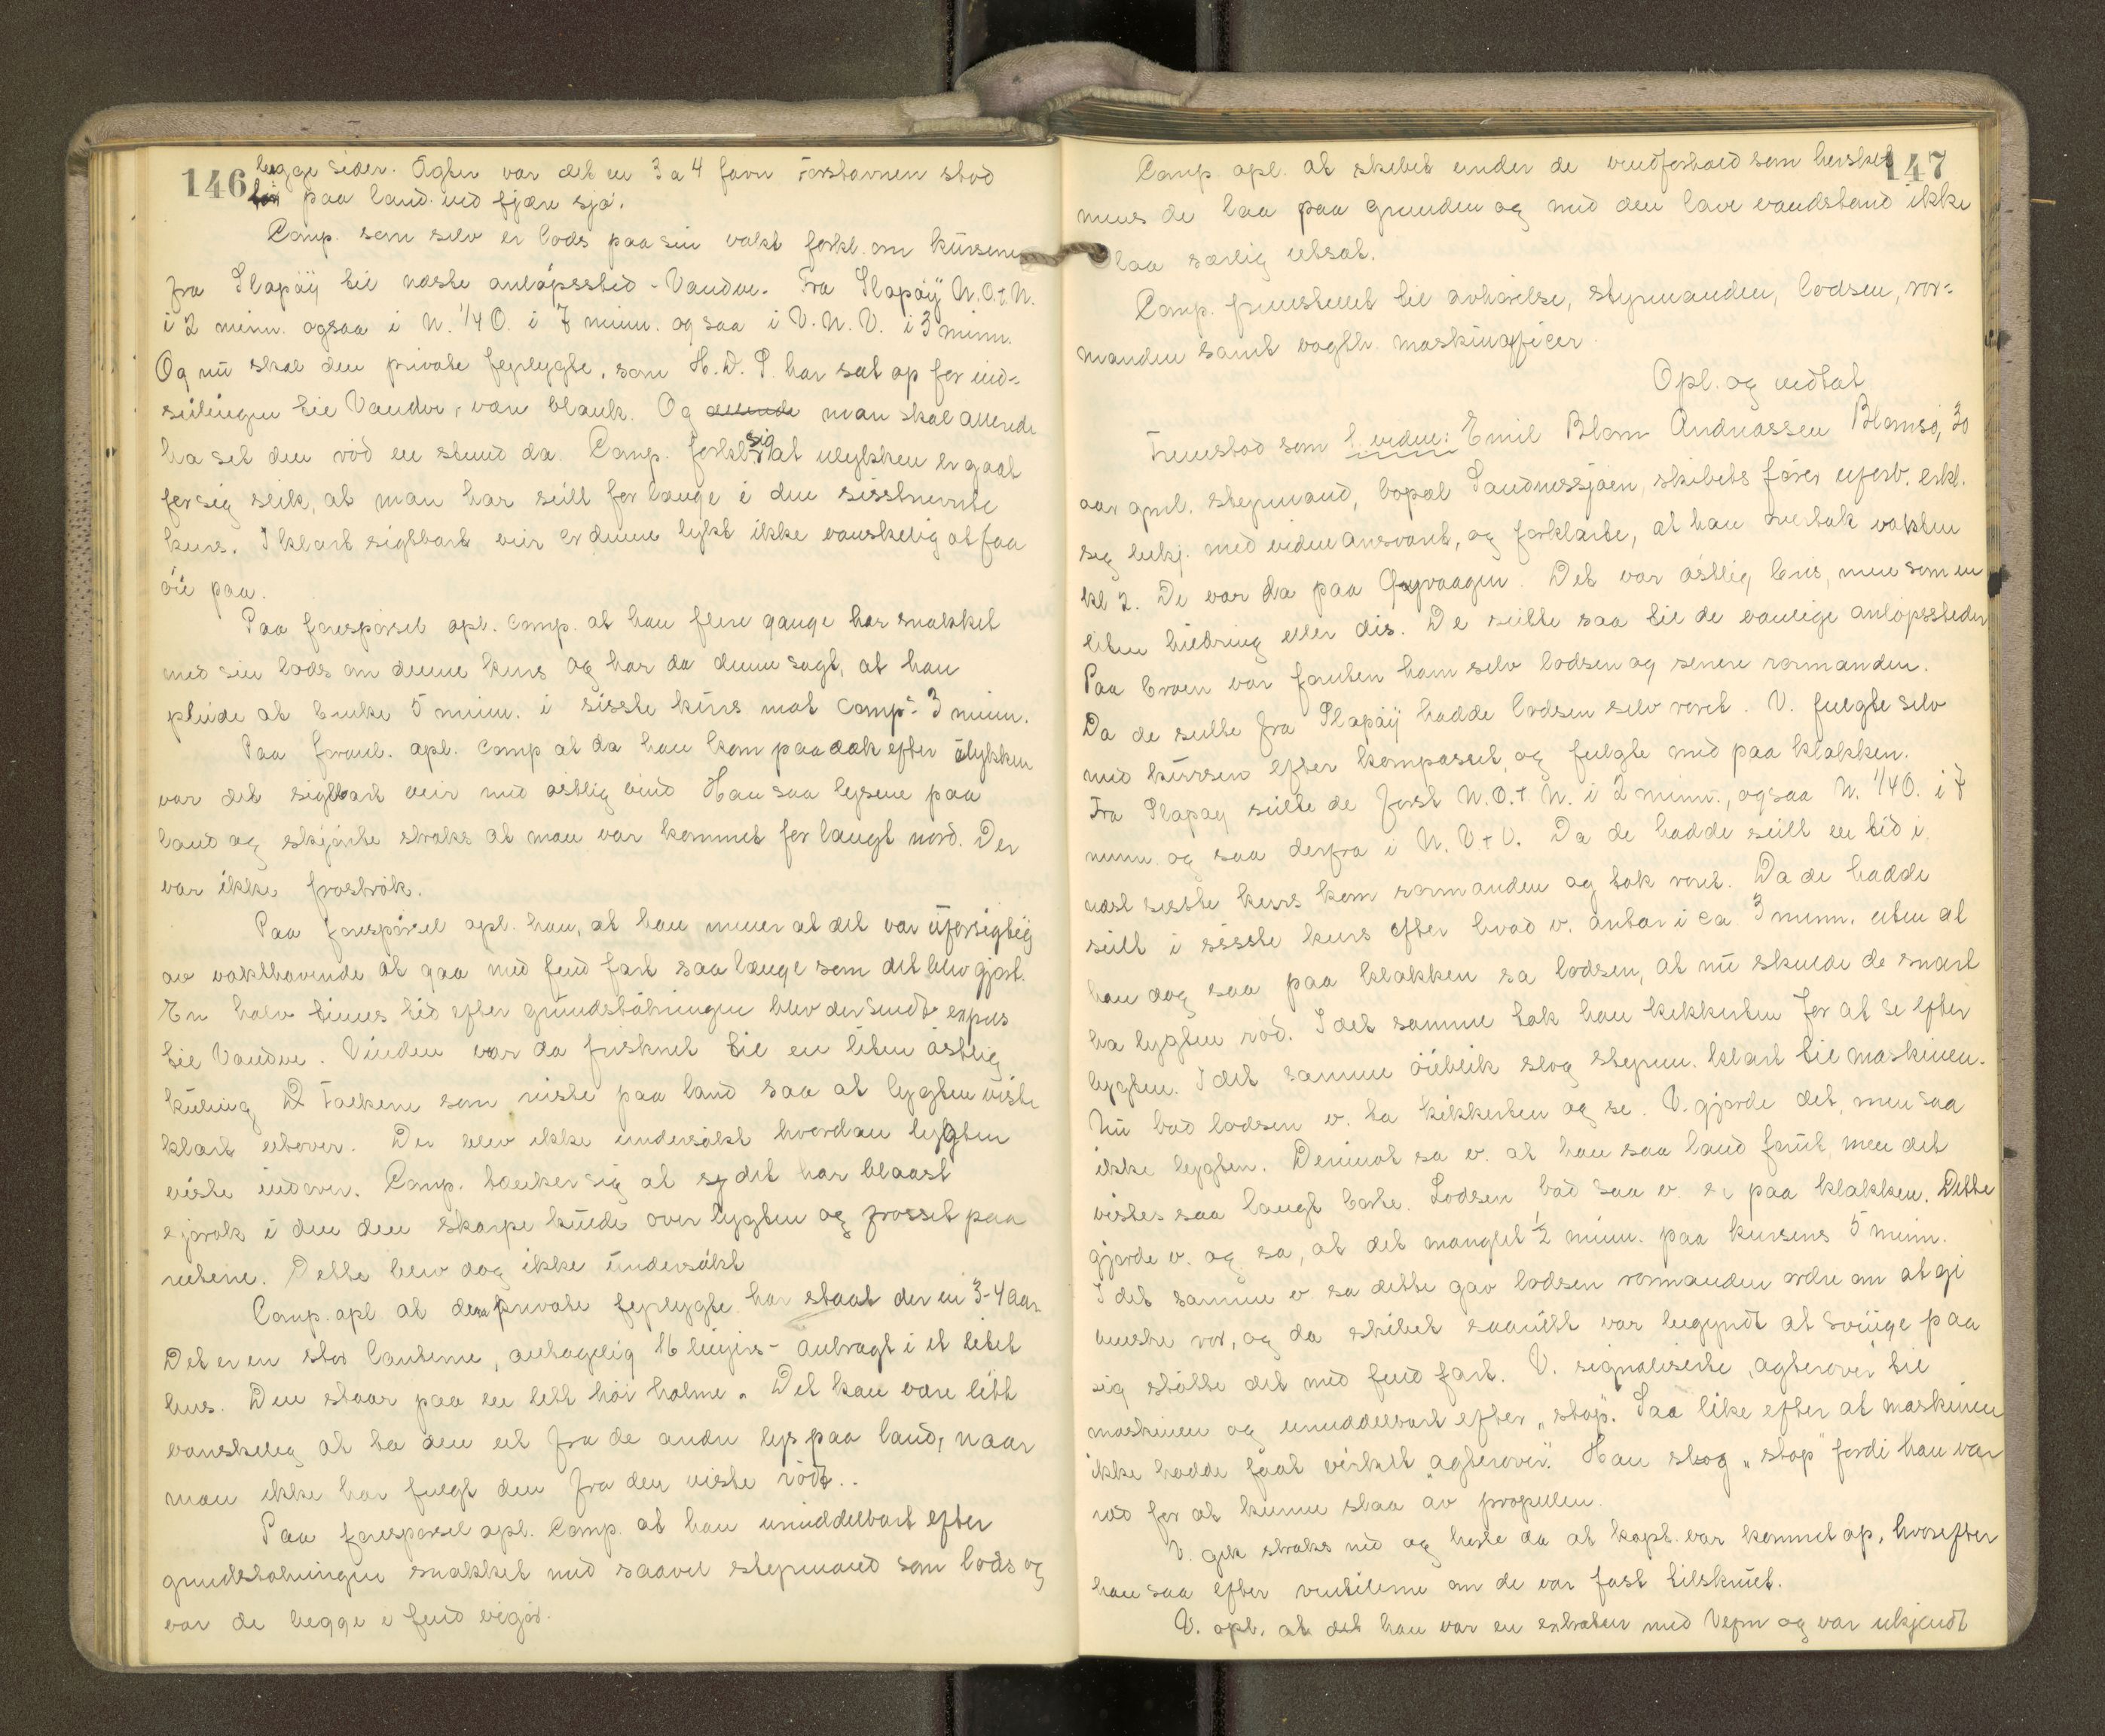 146 begge sider. Agter var det en 3 a 4 favn Forstavnen stod
paa land ved fjære sjø.
Comp. som selv er lods paa sin vakt forkl. om kursene
fra Slapøy til næste anløpssted - Vandve. Fra Slapøy N.O.t.N.
i 2 minn. ogsaa i N. 1/4 O. i 7 minn. og saa i V.N.V. i 3 minn.
Og nu skal den private fyrlygte, som H.D.S. har sat op for ind-
seilingen til Vandve, være blank. Og allerede man skal allerede
ha set den rød en stund da. Comp. forkl. sig at ulykken er gaat
for sig slik, at man har seilt for længe i den sisstnevnte
kurs. I klart sigtbart veir er denne lykt ikke vanskelig at faa
øie paa.
Paa forespørsel opl. comp. at han flere gange har snakket
med sin lods om denne kurs og har da denne sagt, at han
pleide at bruke 5 minn. i sisste kurs mot comp.s 3 minn.
Paa foranl. opl. comp at da han kom paa dæk efter ulykken
var det sigtbart veir med østlig vind Han saa lysene paa
land og skjønte straks at man var kommet for langt nord. Der
var ikke frostrøk.
Paa forespørsel opl. han, at han mener at det var uforsigtig
av vakthavende at gaa med fuld fart saa længe som det blev gjort.
En halv times tid efter grundstøtningen blev der sendt expres
til Vandve. Vinden var da frisknet til en liten østlig
kuling D Folkene som reiste paa land saa at lygten viste
klart utover. Der blev ikke undersøkt hvordan lygten
viste indover. Comp. tænker sig at sy det har blaast
sjørøk i den den skarpe kulde over lygten og frosset paa
rutene. Dette blev dog ikke undersøkt
Comp. opl at denne private fyrlygte har staat der en 3-4 aar
Det er en stor lanterne, antagelig 16 linjers - anbragt i et litet
hus. Den staar paa en lett høi holme. Det kan være litt
vanskelig at ha den ut fra de andre lys paa land, naar
man ikke har fulgt den fra den viste rødt..
Paa forespørsel opl. Comp. at han umiddelbart efter
grundstøtningen snakket med saavel styrmand som lods og
var de begge i fuld vigør.
147
Comp. opl. at skibet under de vindforhold som hersket
mens de laa paa grunden og med den lave vandstand ikke
laa særlig utsat.
Comp. fremstillet til avhørelse, styrmanden, lodsen, ror-
manden samt vagth. maskinofficer.
Opl. og vedtat
Fremstod som 1. vidne: Emil Blom Andreassen Blomsø, 30
aar gml. styrmand, bopæl Sandnessjøen, skibets fører uforb. erkl.
sig bekj. med vidneansvaret, og forklarte, at han overtok vakten
kl 2. De var da paa Høyvaagen. Det var østlig bris, men som en
liten hildring eller dis. De seilte saa til de vanlige anløpssteder
Paa broen var foruten ham selv lodsen og senere rormanden.
Da de seilte fra Slapøy hadde lodsen selv roret. V. fulgte selv
med kursen efter kompasset, og fulgte med paa klokken.
Fra Slapøy seilte de først N.O.t N. i 2 minn., ogsaa N. 1/4 O. i 7
minn. og saa derfra i N.V.t V. Da de hadde seilt en tid i
næst sisste kurs kom rormanden og tok roret. Da de hadde
seilt i sisste kurs efter hvad v. antar i ca 3 minn. uten at
han dog saa paa klokken sa lodsen, at nu skulde de snart
ha lygten rød. I det samme tok han kikkerten for at se efter
lygten. I det samme øieblik slog styrm. klart til maskinen.
Nu bad lodsen v. ta kikkerten og se. V. gjorde det, men saa
ikke lygten. Derimot sa v. at han saa land forut, men det
vistes saa langt borte. Lodsen bad saa v. se paa klokken. Dette
gjorde v. og sa, at det manglet 1/2 minn. paa kursens 5 minn.
I det samme v. sa dette gav lodsen rormanden ordre om at gi
venstre ror, og da skibet saavidt var begyndt at svinge paa
sig støtte det med fuld fart. V. signaliserte agterover til
maskinen og umiddelbart efter "stop". Saa like efter at maskinen
ikke hadde faat virket "agterover". Han slog "stop" fordi han var
rædd for at kunne slaa av propellen.
V. gik straks ned og hørte da at kapt. var kommet op, hvorefter
han saa efter ventilerne om de var fast tilskruet.
V. opl. at det han var en extratur med Vefsn og var ukjendt